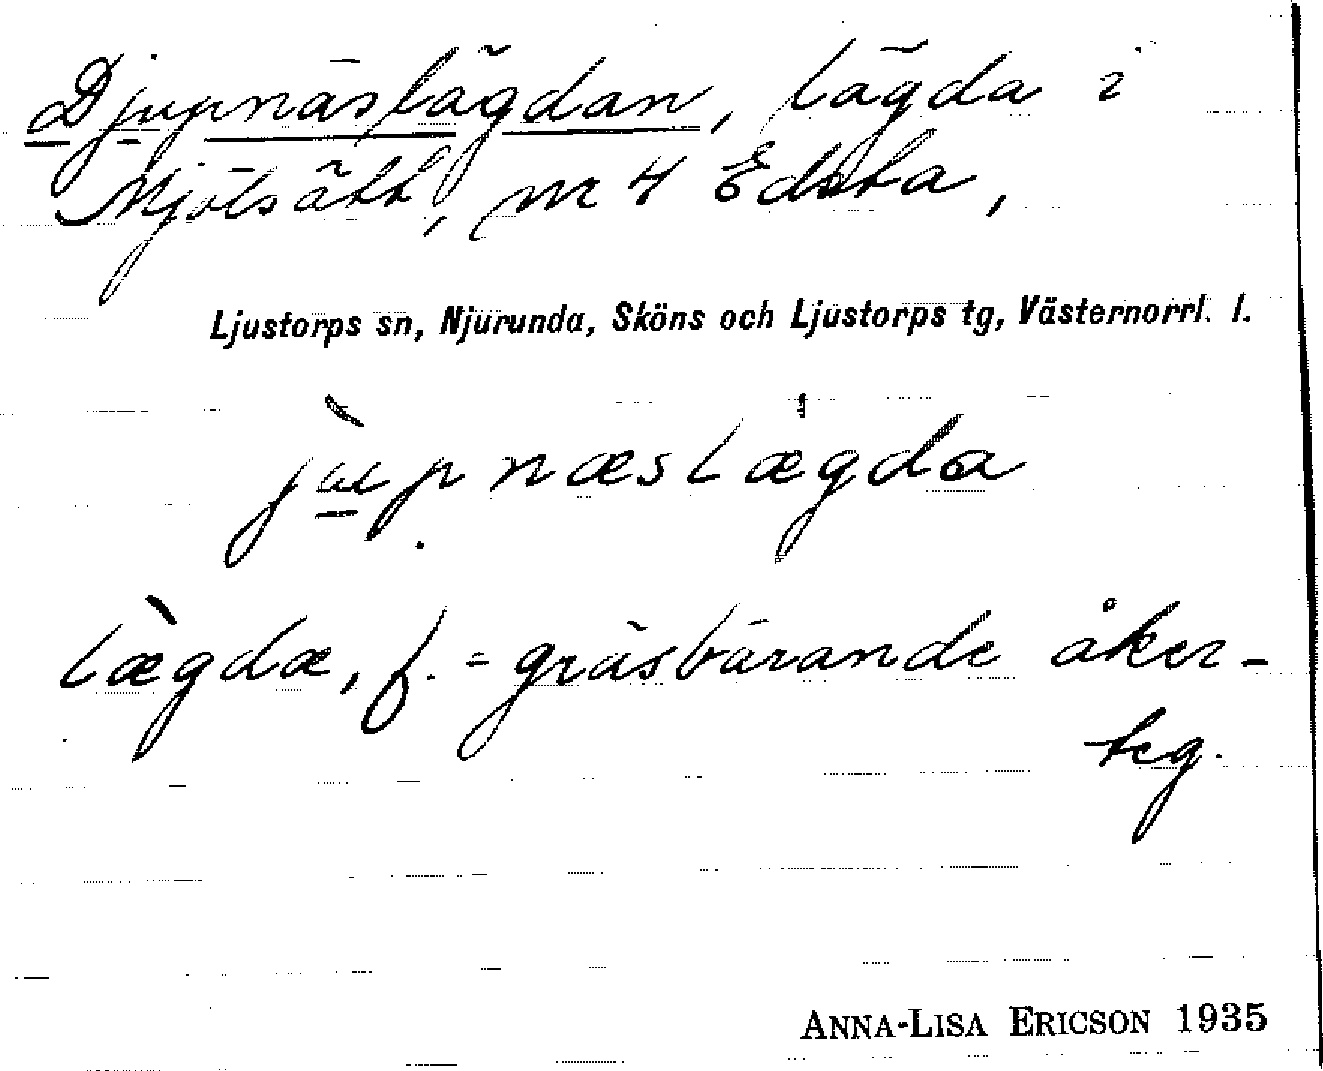 Djupnäslägdan, lägda i
Mjölsätt, nr 4 Edsta,
Ljustorps sn, Njurunda, Sköns och Ljustorps tg, Västernorrl. l.
jùpnæslægda
lægdæ, f. = gräsbärande åker-
teg.
ANNA-LISA ERICSON 1935